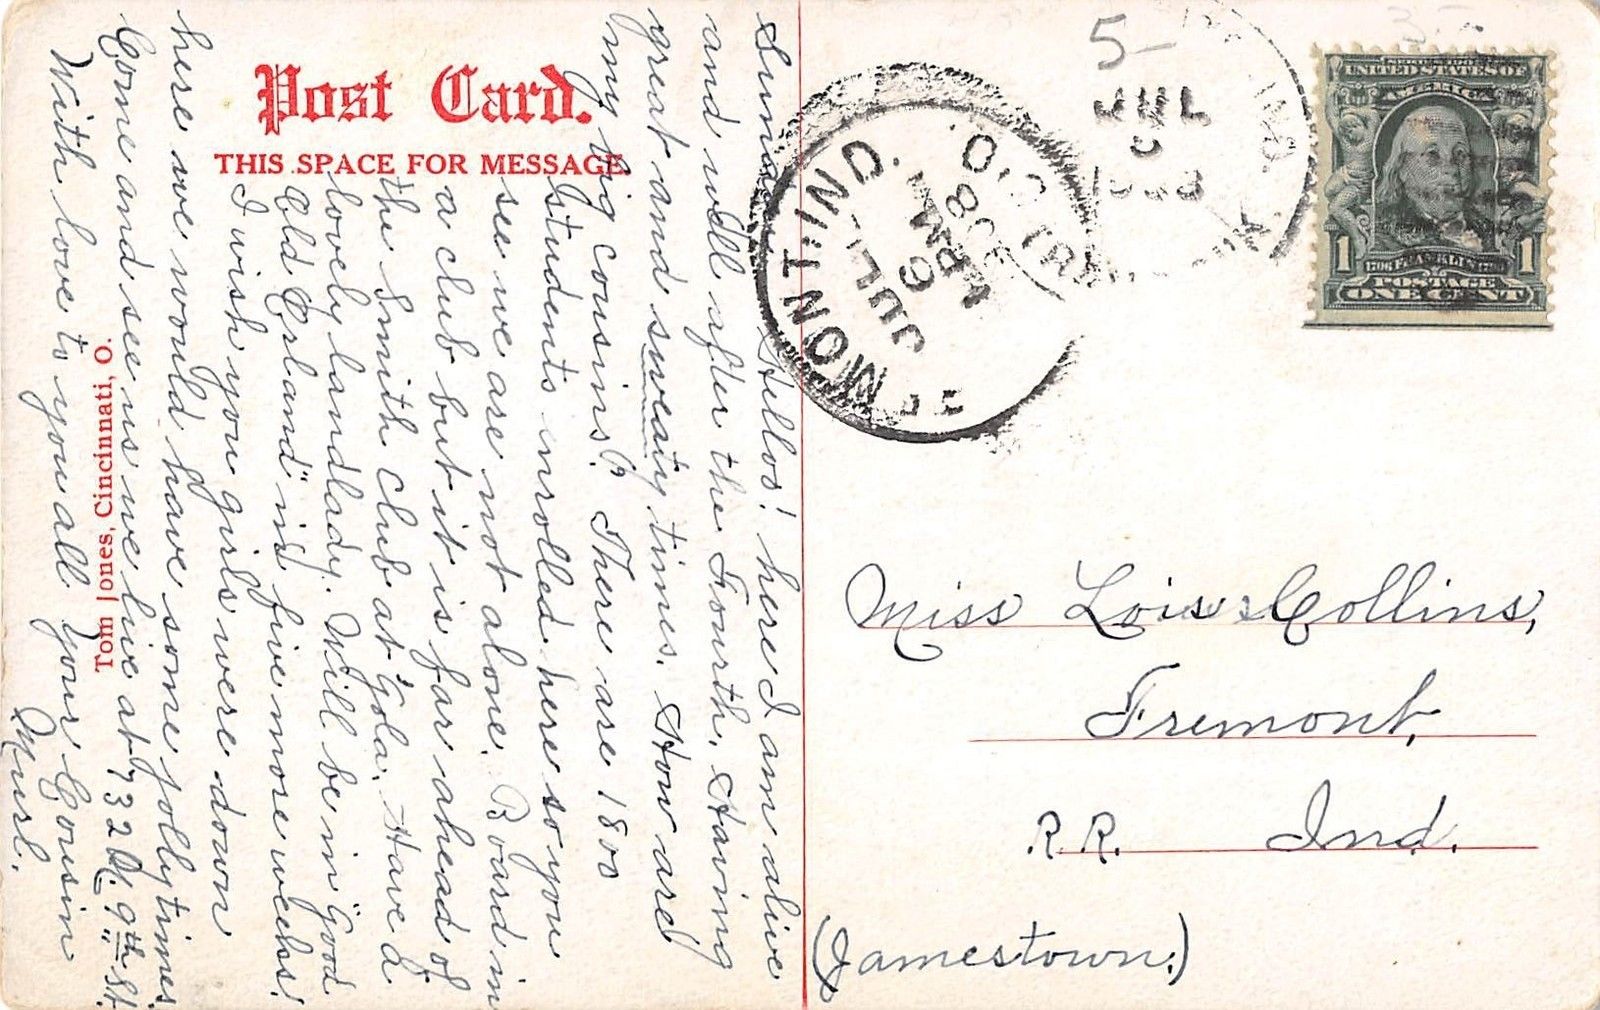 Post Card.
THIS SPACE FOR MESSAGE
Sunday. Helloo! here I am alive
and well after the Fourth. Having
great and sweaty times. How are
my big cousins? There are 1800
Students inrolled here so you
see we are not alone. Board in
a club but it is far ahead of
the Smith Club at Gola. Have a
lovely landlady. Will be in "Good
Old Erland" in five more weeks!
I wish you girls were down
here we would have some jolly times.
Come and see us we live at 732 N. 9th St.
With love to you all your Cousin
Murl.
Tom Jones, Cincinnati, O.
5-
IND.
JUL
FREMONT, IND.
JUL
6
4PM
1908
REC'D.
UNITED STATES OF
AMERICA
1 1
1706 FRANKLIN 1790
POSTAGE
ONE CENT
Miss Lois Collins,
Fremont,
R.R. Ind.
(Jamestown.)